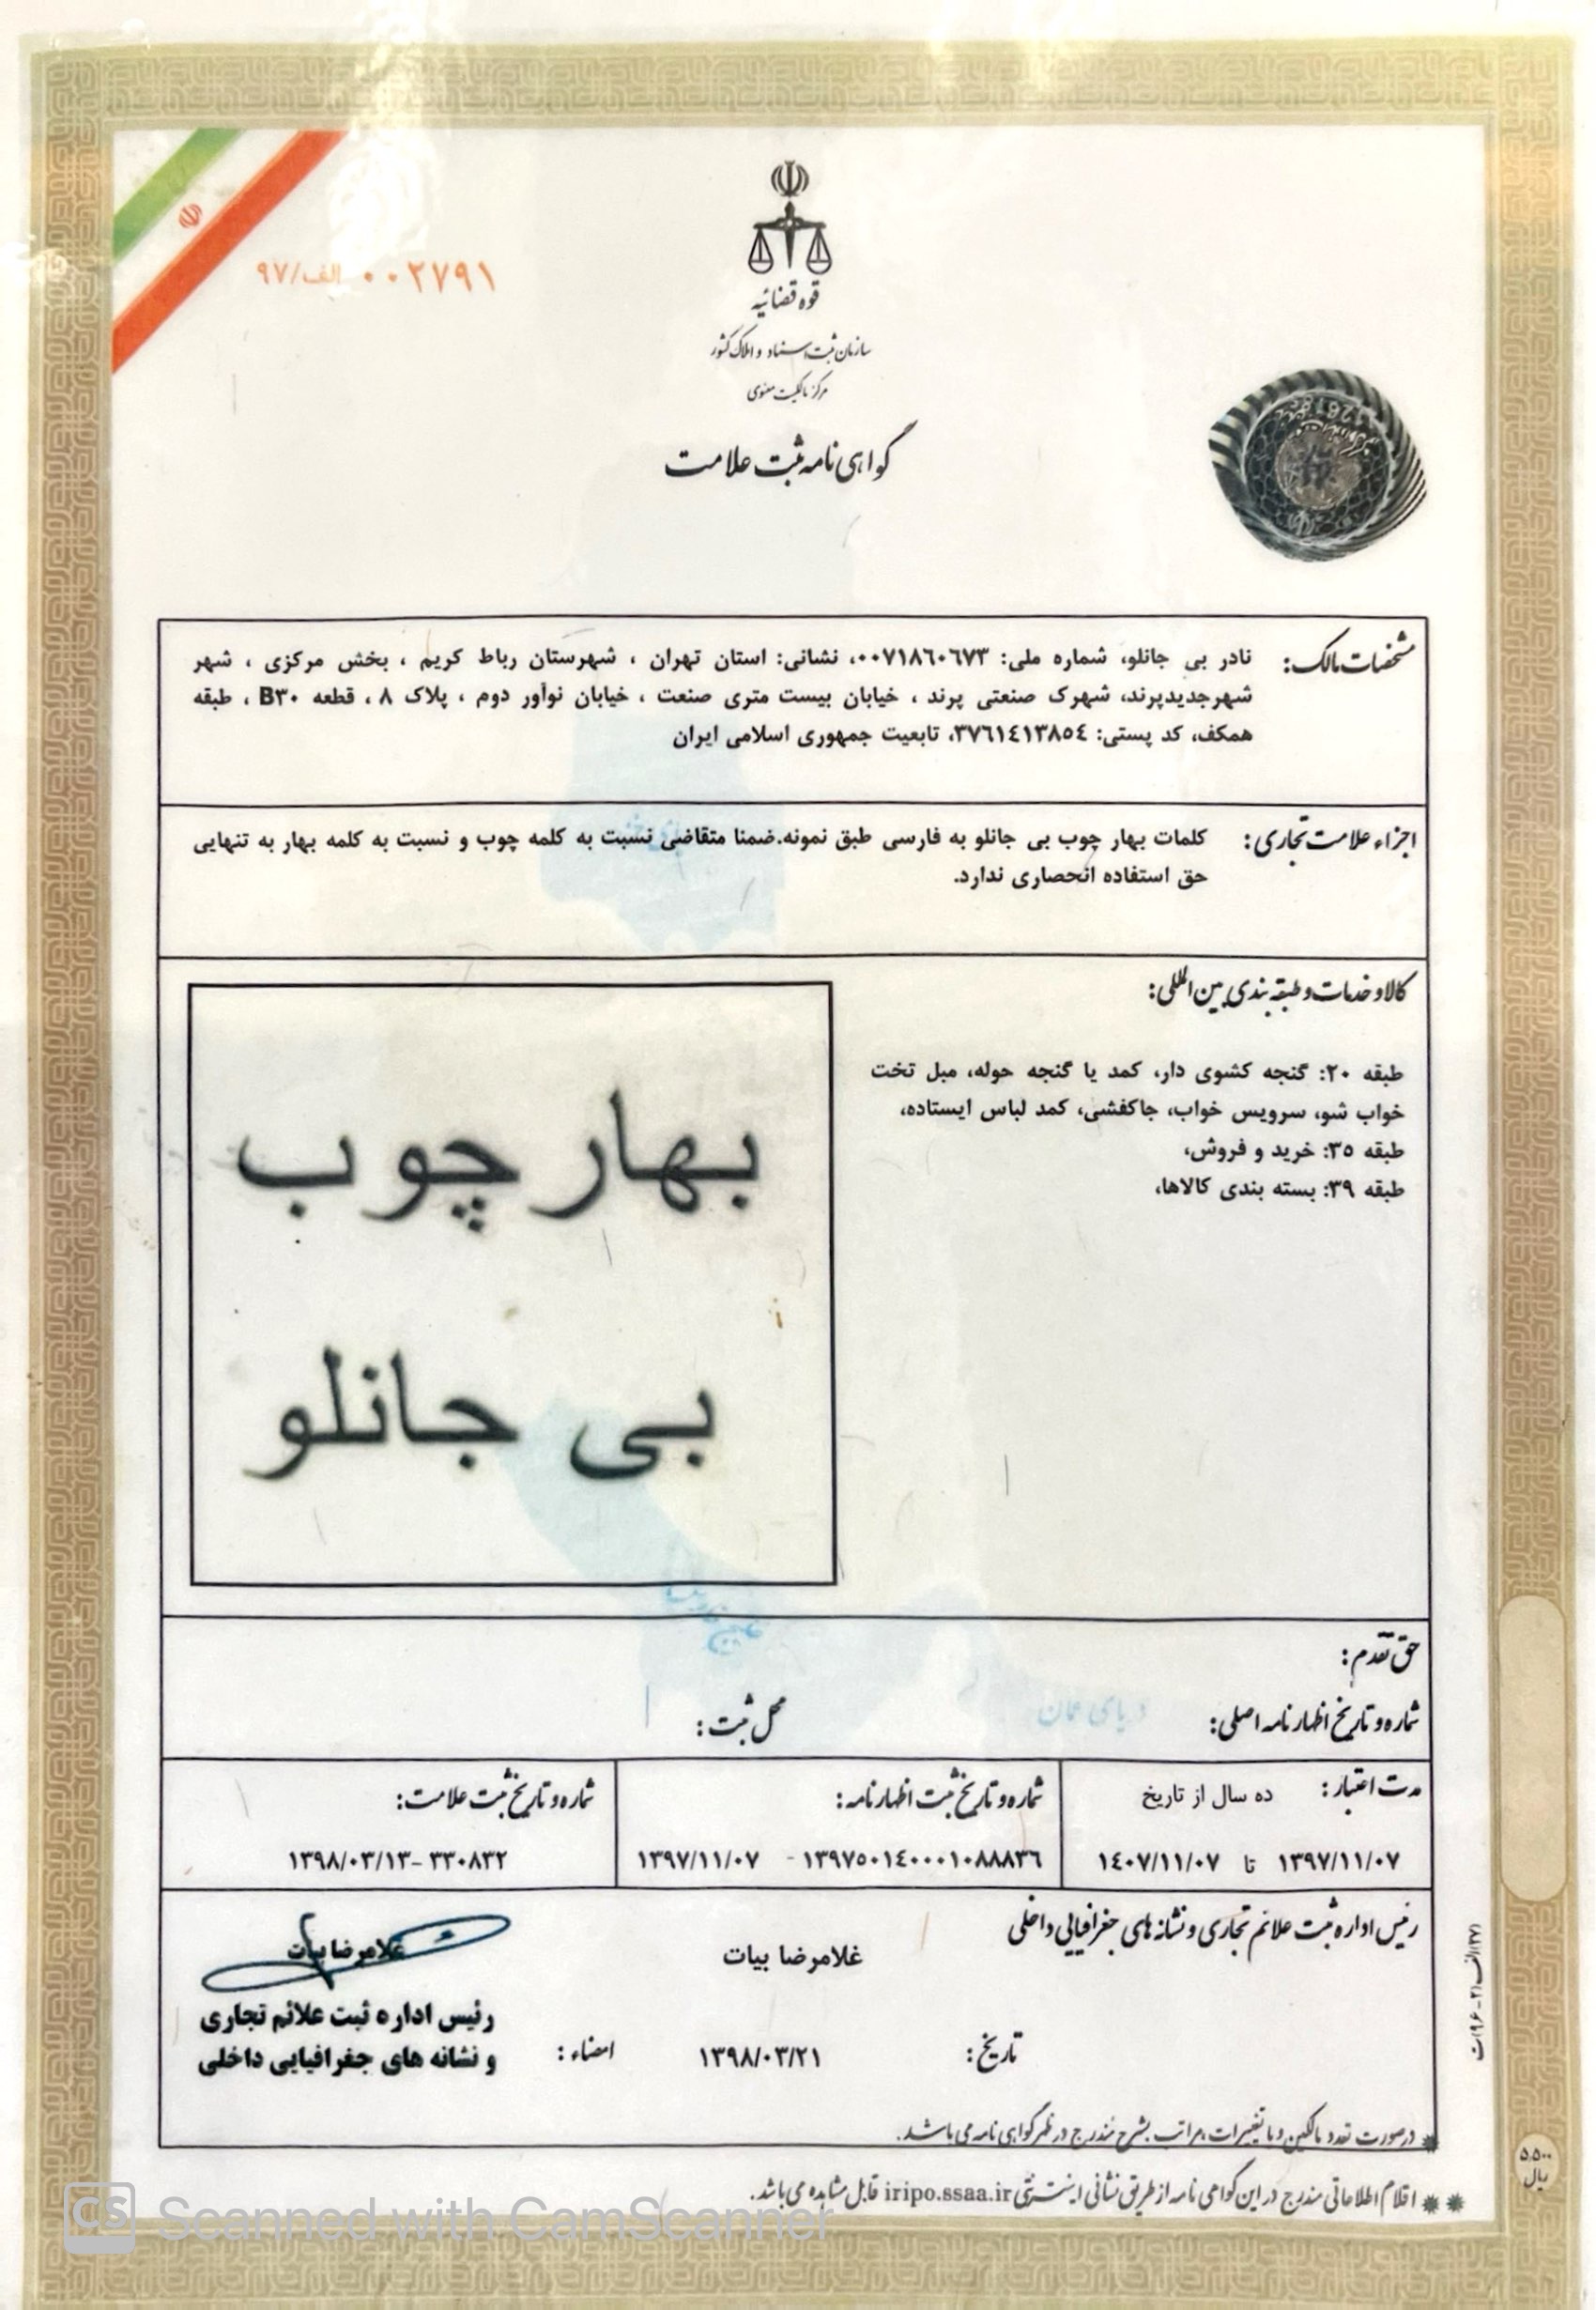 ۰۰۲۷۹۱ الف/۹۷
قوه قضائیه
سازمان ثبت اسناد و املاک کشور
مرکز مالکیت معنوی
گواهی نامه ثبت علامت
مشخصات مالک: نادر بی جانلو، شماره ملی: ۰۰۷۱۸٦۰٦۷۳، نشانی: استان تهران ، شهرستان رباط کریم ، بخش مرکزی ، شهر
شهرجدیدپرند، شهرک صنعتی پرند ، خیابان بیست متری صنعت ، خیابان نوآور دوم ، پلاک ۸ ، قطعه B۳۰ ، طبقه
همکف، کد پستی: ۳۷٦۱٤۱۳۸٥٤، تابعیت جمهوری اسلامی ایران
اجزاء علامت تجاری: کلمات بهار چوب بی جانلو به فارسی طبق نمونه.ضمنا متقاضی نسبت به کلمه چوب و نسبت به کلمه بهار به تنهایی
حق استفاده انحصاری ندارد.
کالا و خدمات و طبقه بندی بین المللی:
طبقه ۲۰: گنجه کشوی دار، کمد یا گنجه حوله، مبل تخت
خواب شو، سرویس خواب، جاکفشی، کمد لباس ایستاده،
طبقه ۳٥: خرید و فروش،
طبقه ۳۹: بسته بندی کالاها،
بهار چوب
بی جانلو
حق تقدم:
شماره و تاریخ اظهارنامه اصلی: محل ثبت:
دریای عمان
مدت اعتبار: ده سال از تاریخ
۱۳۹۷/۱۱/۰۷ تا ۱٤۰۷/۱۱/۰۷
شماره و تاریخ ثبت اظهارنامه:
۱۳۹۷٥۰۱٤۰۰۰۱۰۸۸۸۳٦ - ۱۳۹۷/۱۱/۰۷
شماره و تاریخ ثبت علامت:
۳۳۰۸۳۲ -۱۳۹۸/۰۳/۱۳
رئیس اداره ثبت علائم تجاری و نشانه های جغرافیایی داخلی
غلامرضا بیات
تاریخ: ۱۳۹۸/۰۳/۲۱
امضاء:
غلامرضا بیات
رئیس اداره ثبت علائم تجاری
و نشانه های جغرافیایی داخلی
* درصورت تعدد مالکین و یا تغییرات، مراتب بشرح مندرج در ظهر گواهی نامه می باشد.
** اقلام اطلاعاتی مندرج در این گواهی نامه از طریق نشانی اینترنتی iripo.ssaa.ir قابل مشاهده می باشد.
۵،۵۰۰
ریال
CS Scanned with CamScanner